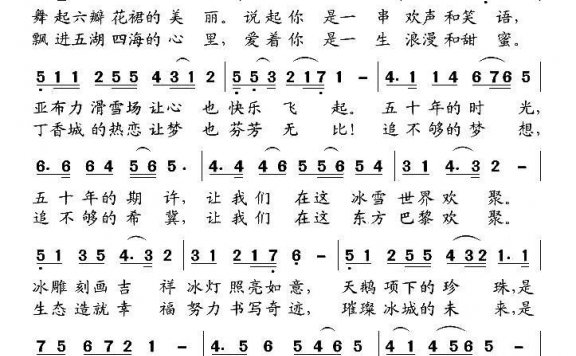 舞起六瓣花裙的美丽。说起你是一串欢声和笑语,
飘进五湖四海的心里,爱着你是一生浪漫和甜蜜。
5 1 1 2 5 5 4 3 1 2 | 5 5 3 2 1 7 1 - | 4. 1 1 4 6 7 6 5 |
亚布力滑雪场让心也快乐飞起。五十年的时光,
丁香城的热恋让梦也芬芳无比!追不够的梦想,
6. 6 6 4 5 6 5. | 4. 4 4 6 5 6 7 5 4 5 | 3 1 4. 3 2 - |
五十年的期许,让我们在这冰雪世界欢聚。
追不够的希冀,让我们在这东方巴黎欢聚。
5 1 3 5 4. 3 | 3 1 2 1 7 6 - | 5. 5 5 2 5 4 4 3 2 1 |
冰雕刻画吉祥冰灯照亮如意,天鹅项下的珍珠,是
生态造就幸福努力书写奇迹,璀璨冰城的未来,是